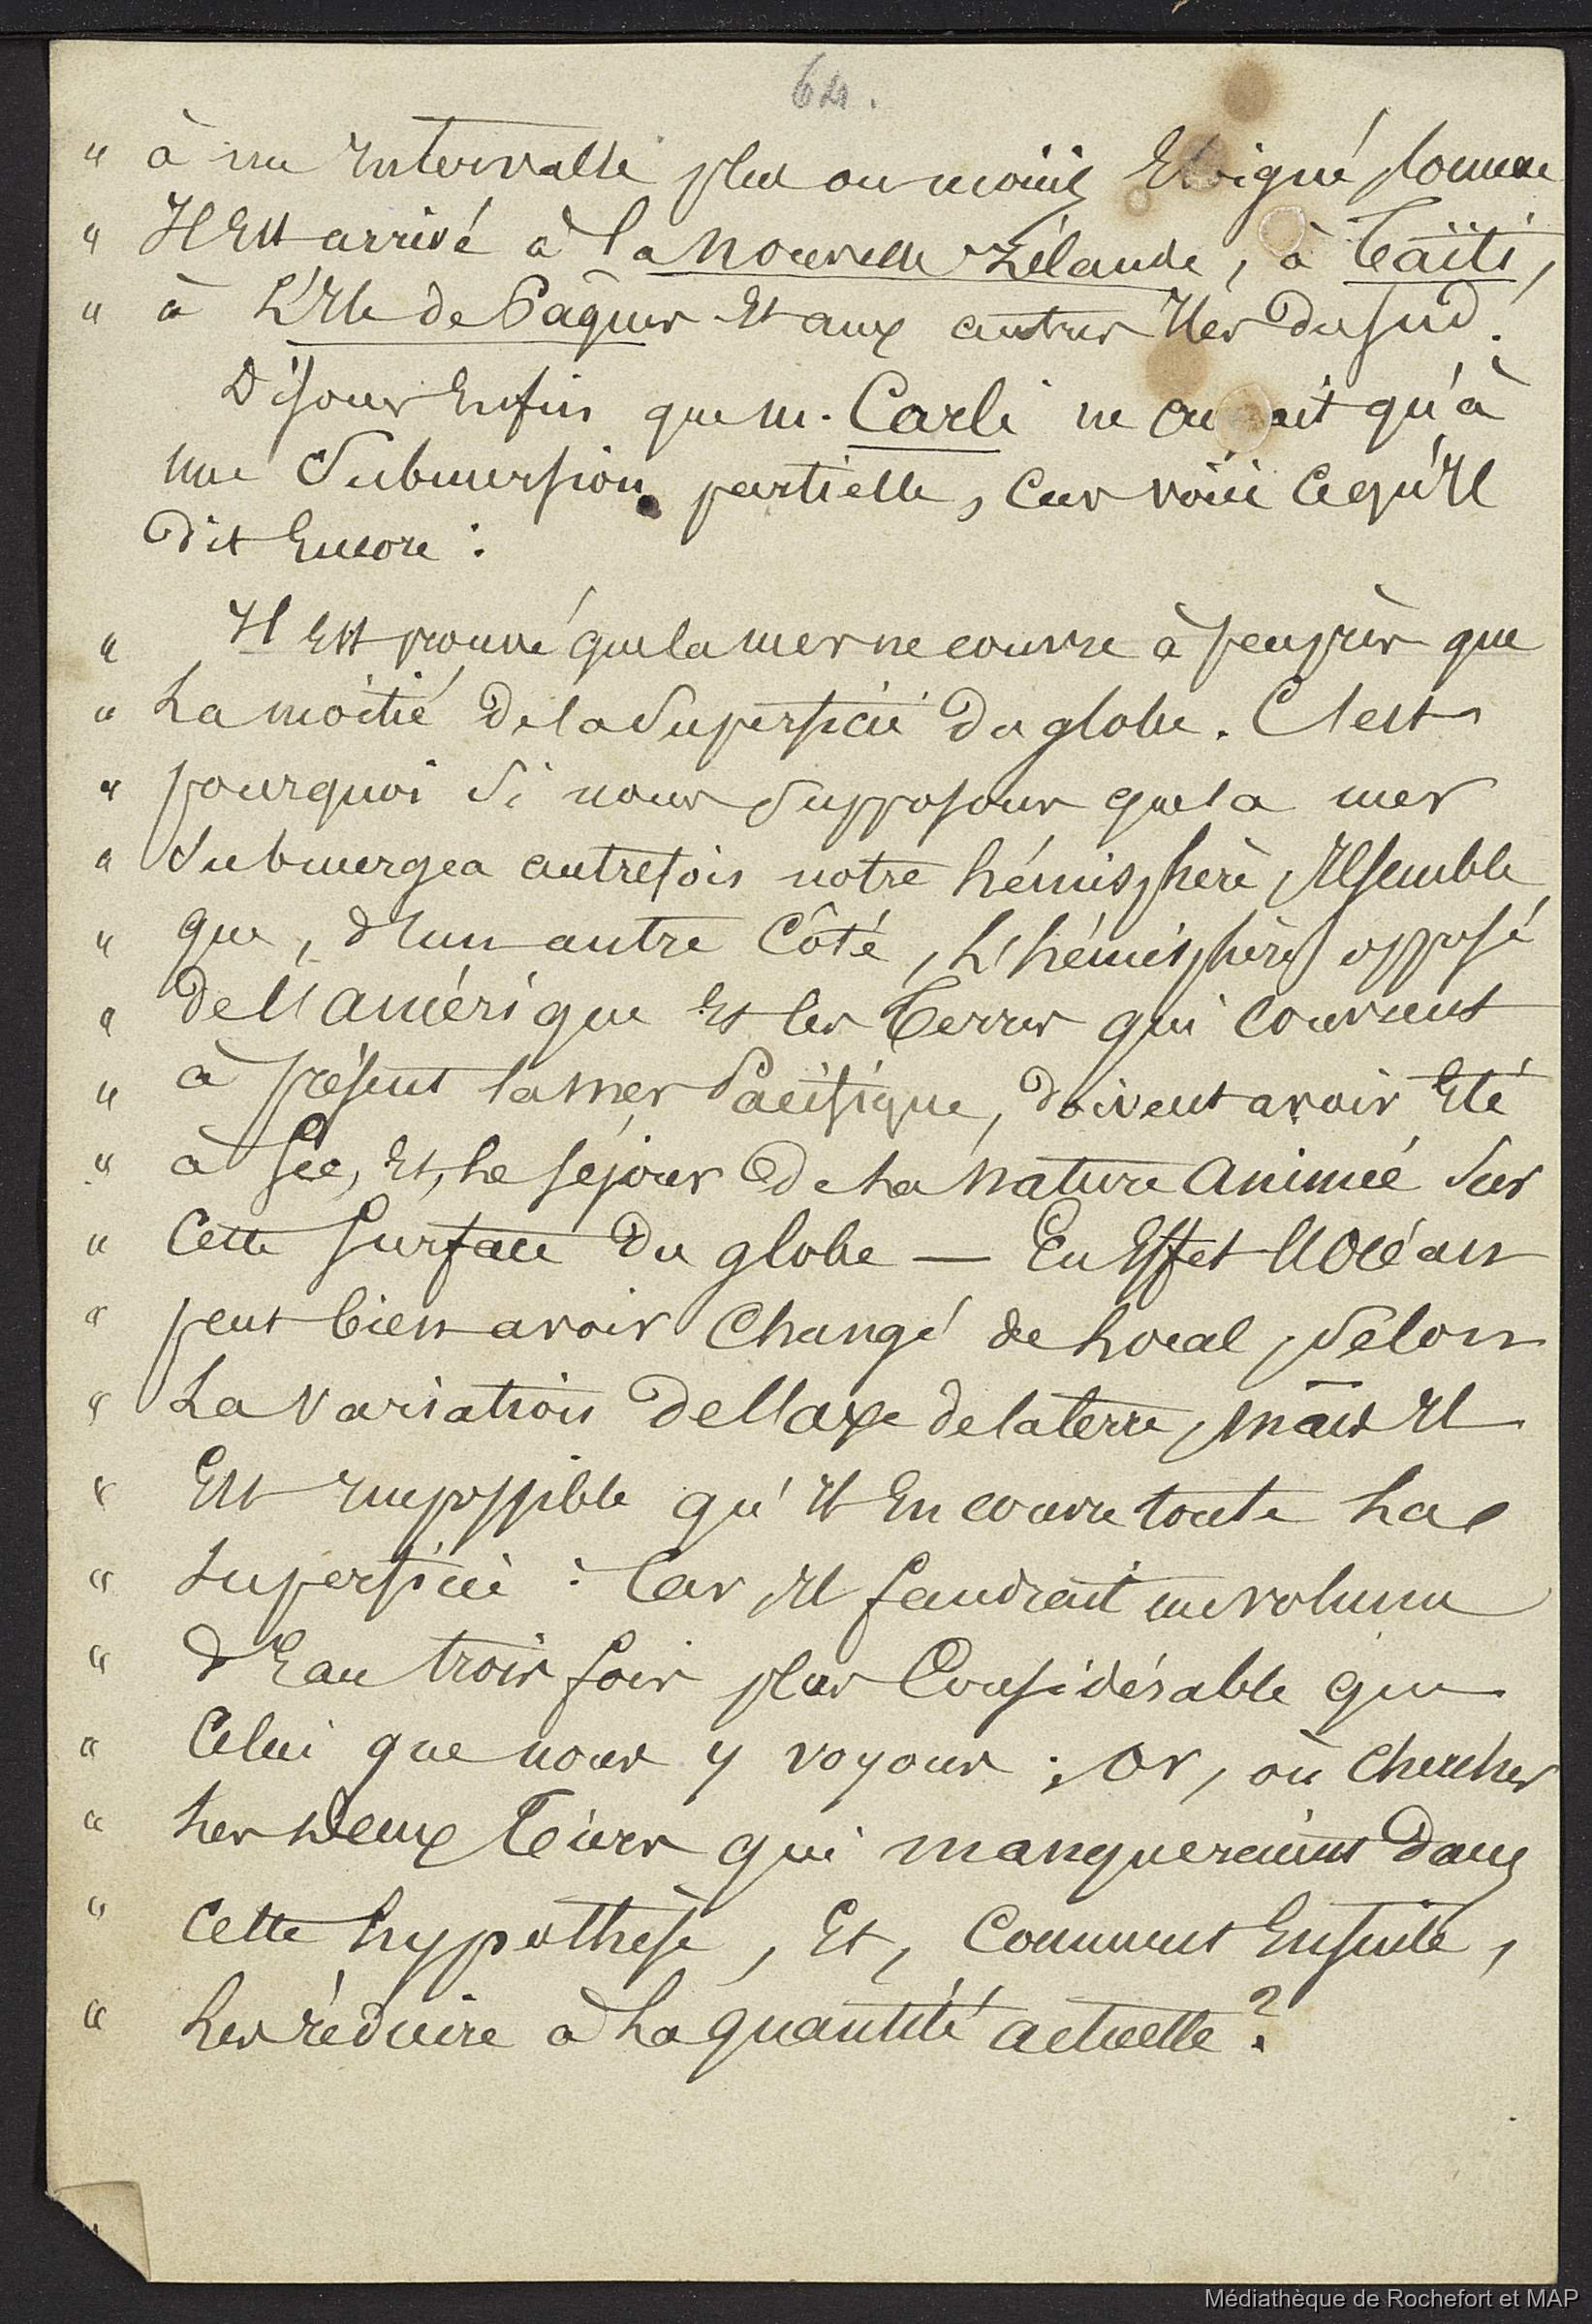 64.
" à un Intervalle plus ou moins Eloigné comme
" Il Est arrivé à la Nouvelle Zélande, à Taïti,
" à L'Ile de Pâques Et aux autres Iles du sud.
Disons Enfin que m. Carli ne croyait qu'à
une Submersion partielle, car voici ce qu'Il
dit Encore :
" Il Est prouvé que la mer ne couvre à peu près que
" La moitié de la Superficie du globe. C'est
" pourquoi Si nous Supposons que la mer
" Submergea autrefois notre hémisphère, Il semble
" que, d'un autre Côté, L'hémisphère opposé
" de l'amérique Et les Terres qui couvrent
" à présent la mer Pacifique, doivent avoir Eté
" à Sec, Et, Le séjour de La Nature animée Sur
" Cette Surface du globe — En Effet l'Océan
" peut bien avoir Changé de Local, Selon
" La Variation de l'axe de la terre, mais Il
" Est Impossible qu'Il En couvre toute La
" Superficie : Car, Il faudrait un volume
" d'Eau trois fois plus Considérable que
" Celui que nous y voyons ; or, où Chercher
" Les Deux Tiers qui manqueraient Dans
" Cette hypothèse, Et, Comment Ensuite,
" Les réduire à La quantité actuelle ?
Médiathèque de Rochefort et MAP